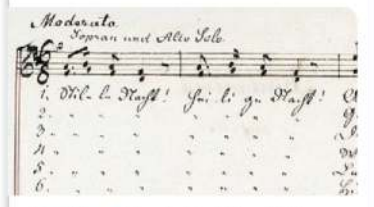 Moderato.
Sopran und Alto Solo.
1. Stil-le Nacht! Hei-li ge Nacht!
2. " " " " " "
3. " " " " " "
4. " " " " " "
5. " " " " " "
6. " " " " " "